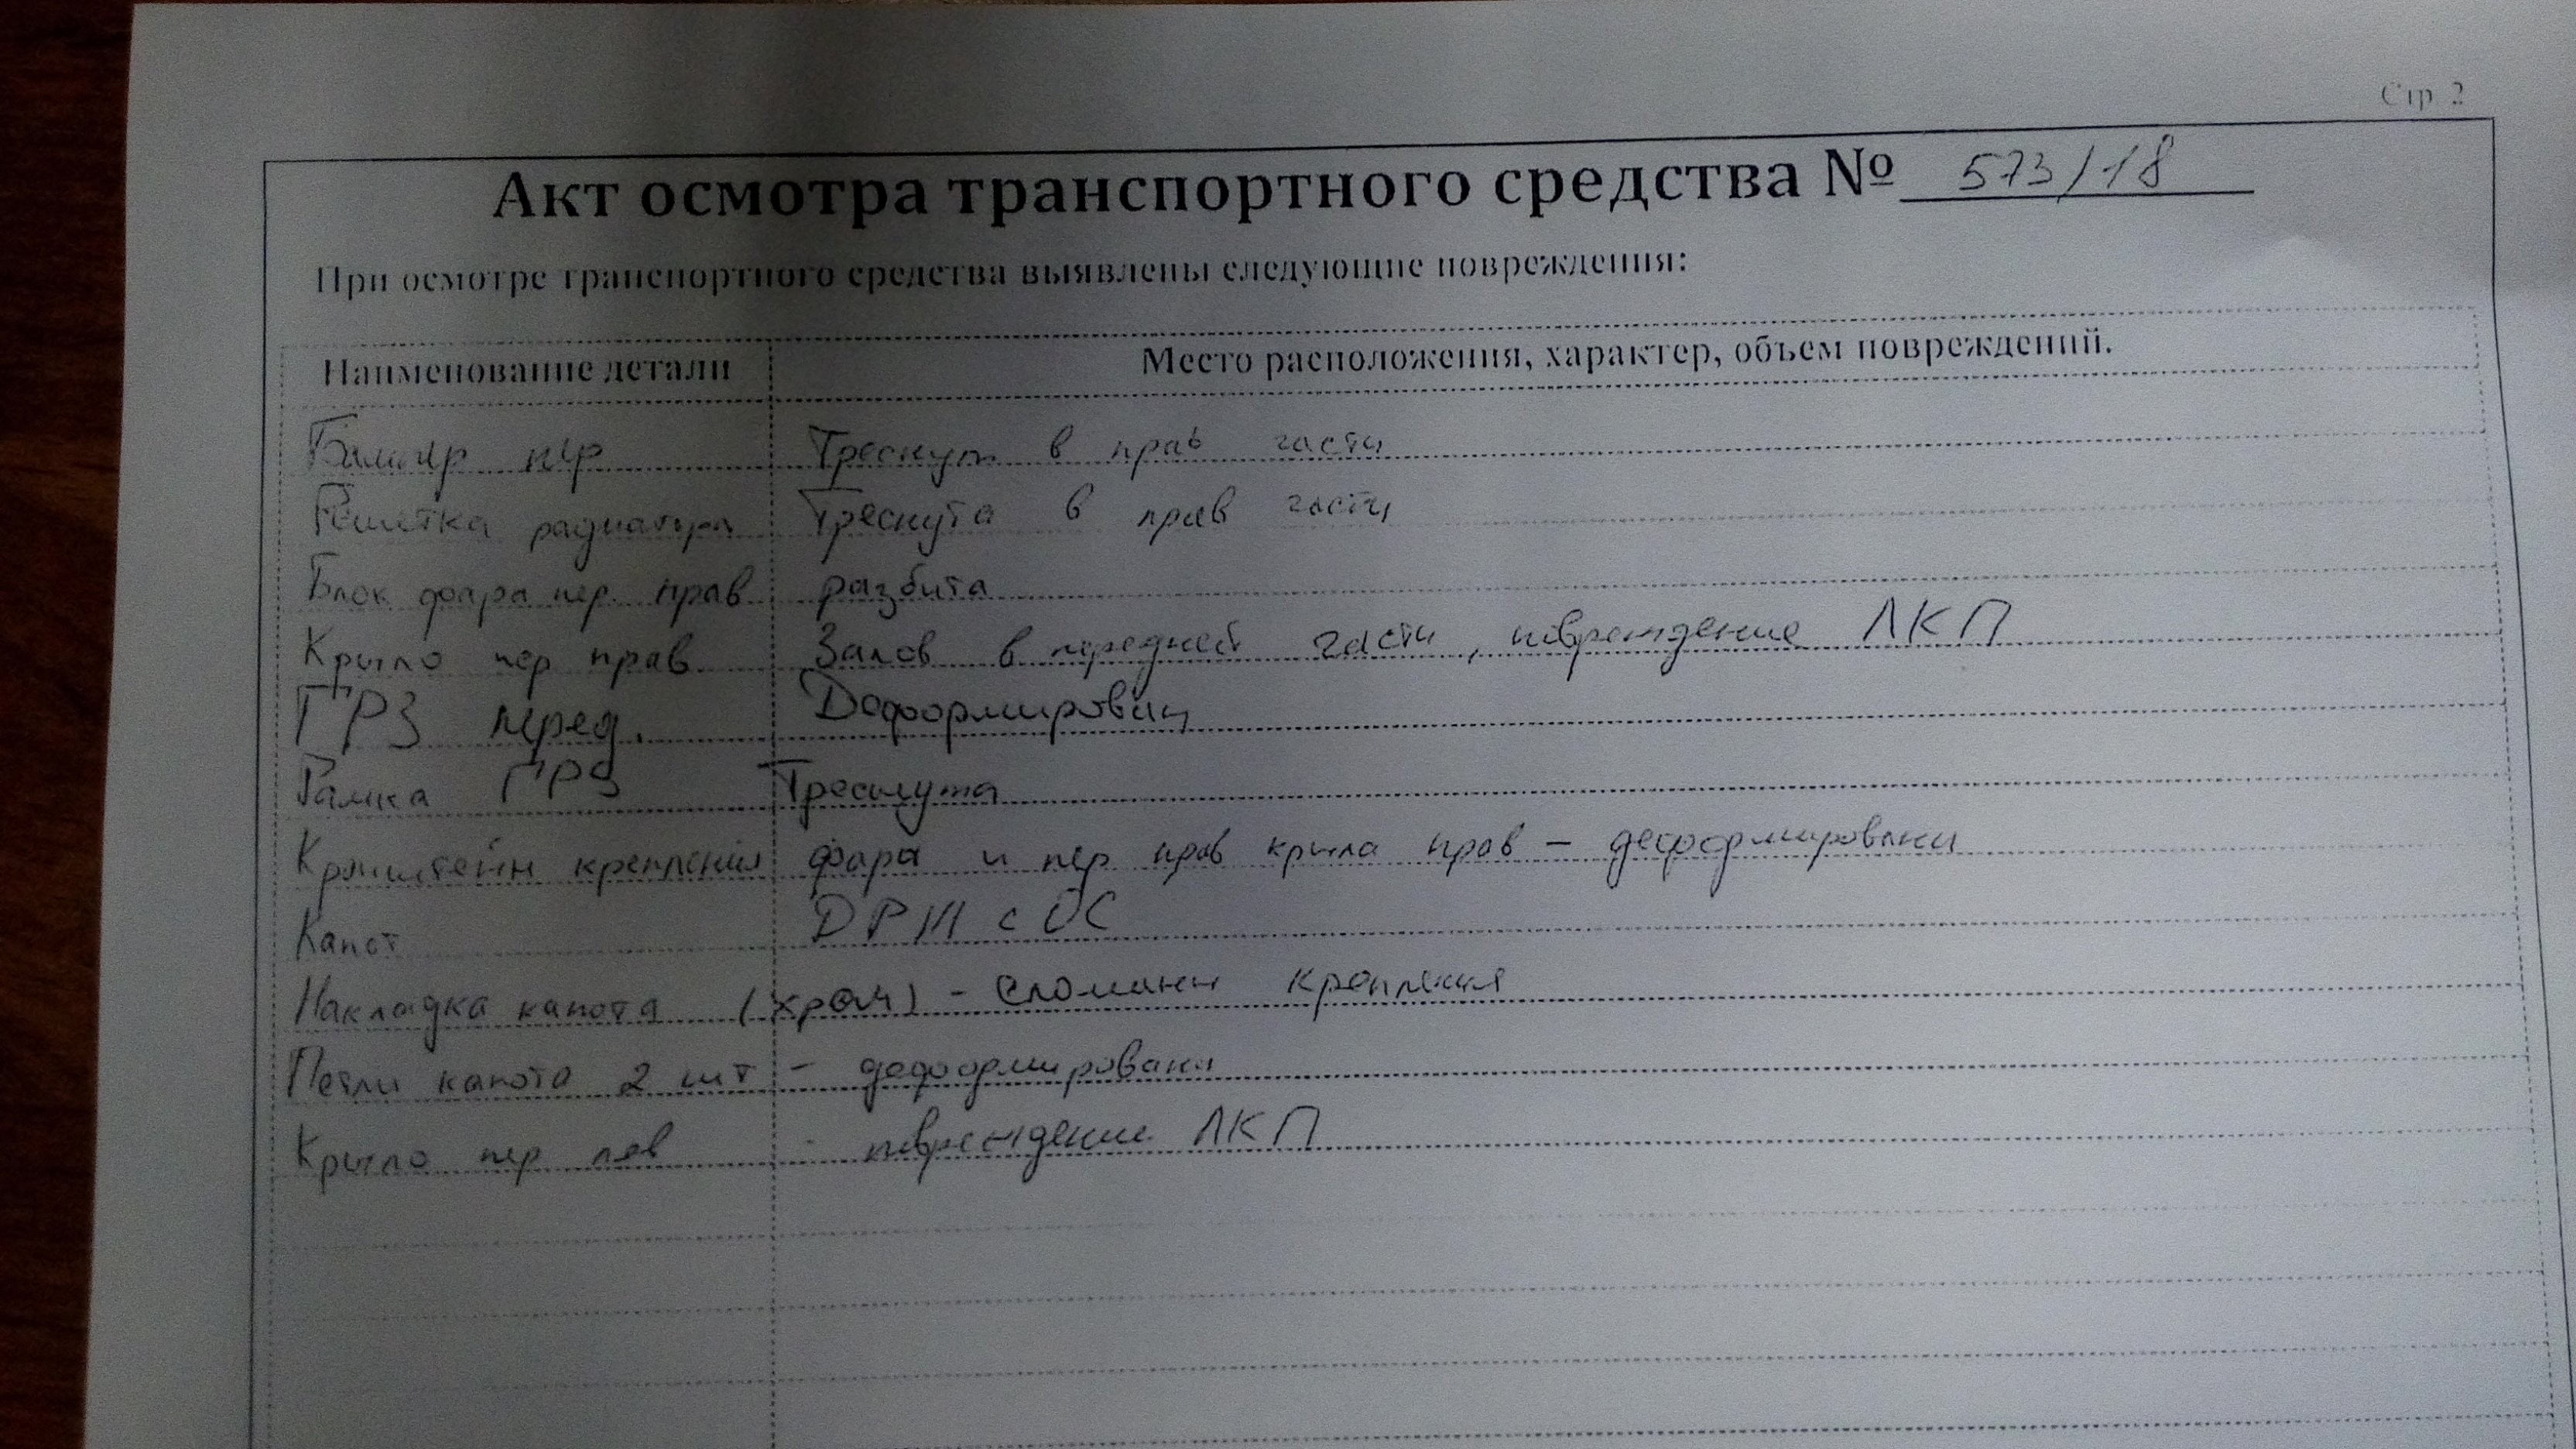 Стр 2
Акт осмотра транспортного средства № 573/18
При осмотре транспортного средства выявлены следующие повреждения:
Наименование детали Место расположения, характер, объем повреждений.
Бампер пер Треснут в прав части
Решетка радиатора Треснута в прав части
Блок фара пер. прав разбита
Крыло пер прав Залов в передней части, повреждение ЛКП
ГРЗ перед. Деформирован
Рамка ГРЗ Треснута
Кронштейн крепления фара и пер прав крыла прав – деформированы
Капот ДРЖ с ОС
Накладка капота (хром) - сломаны крепления
Петли капота 2 шт – деформированы
Крыло пер лев - повреждение ЛКП